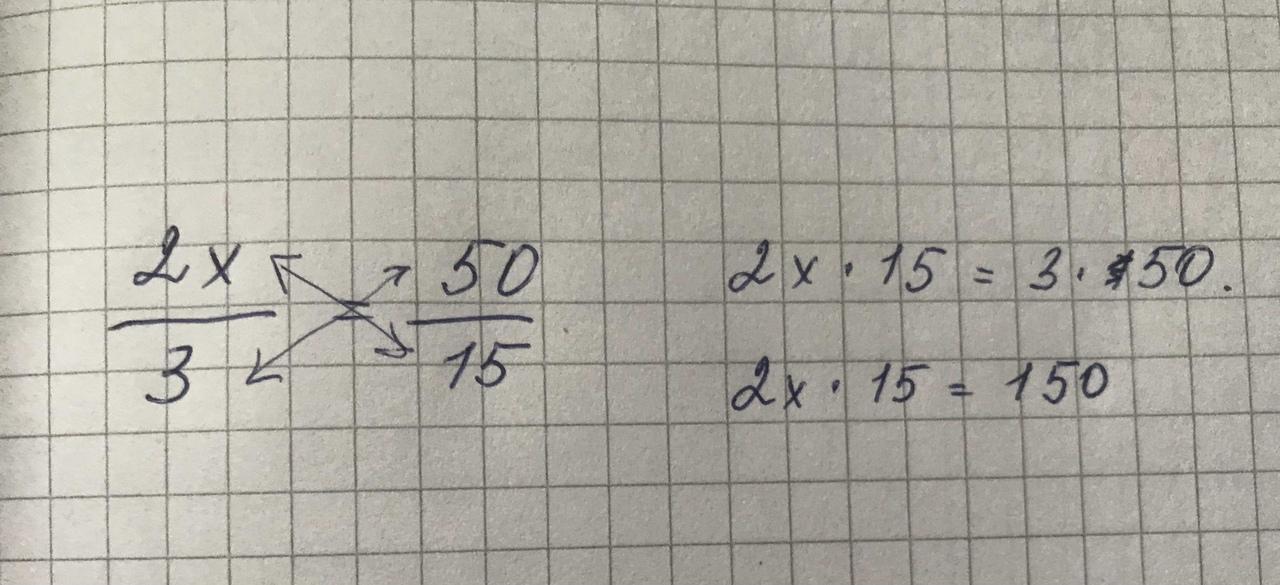 2x/3 = 50/15
2x · 15 = 3 · 50.
2x · 15 = 150